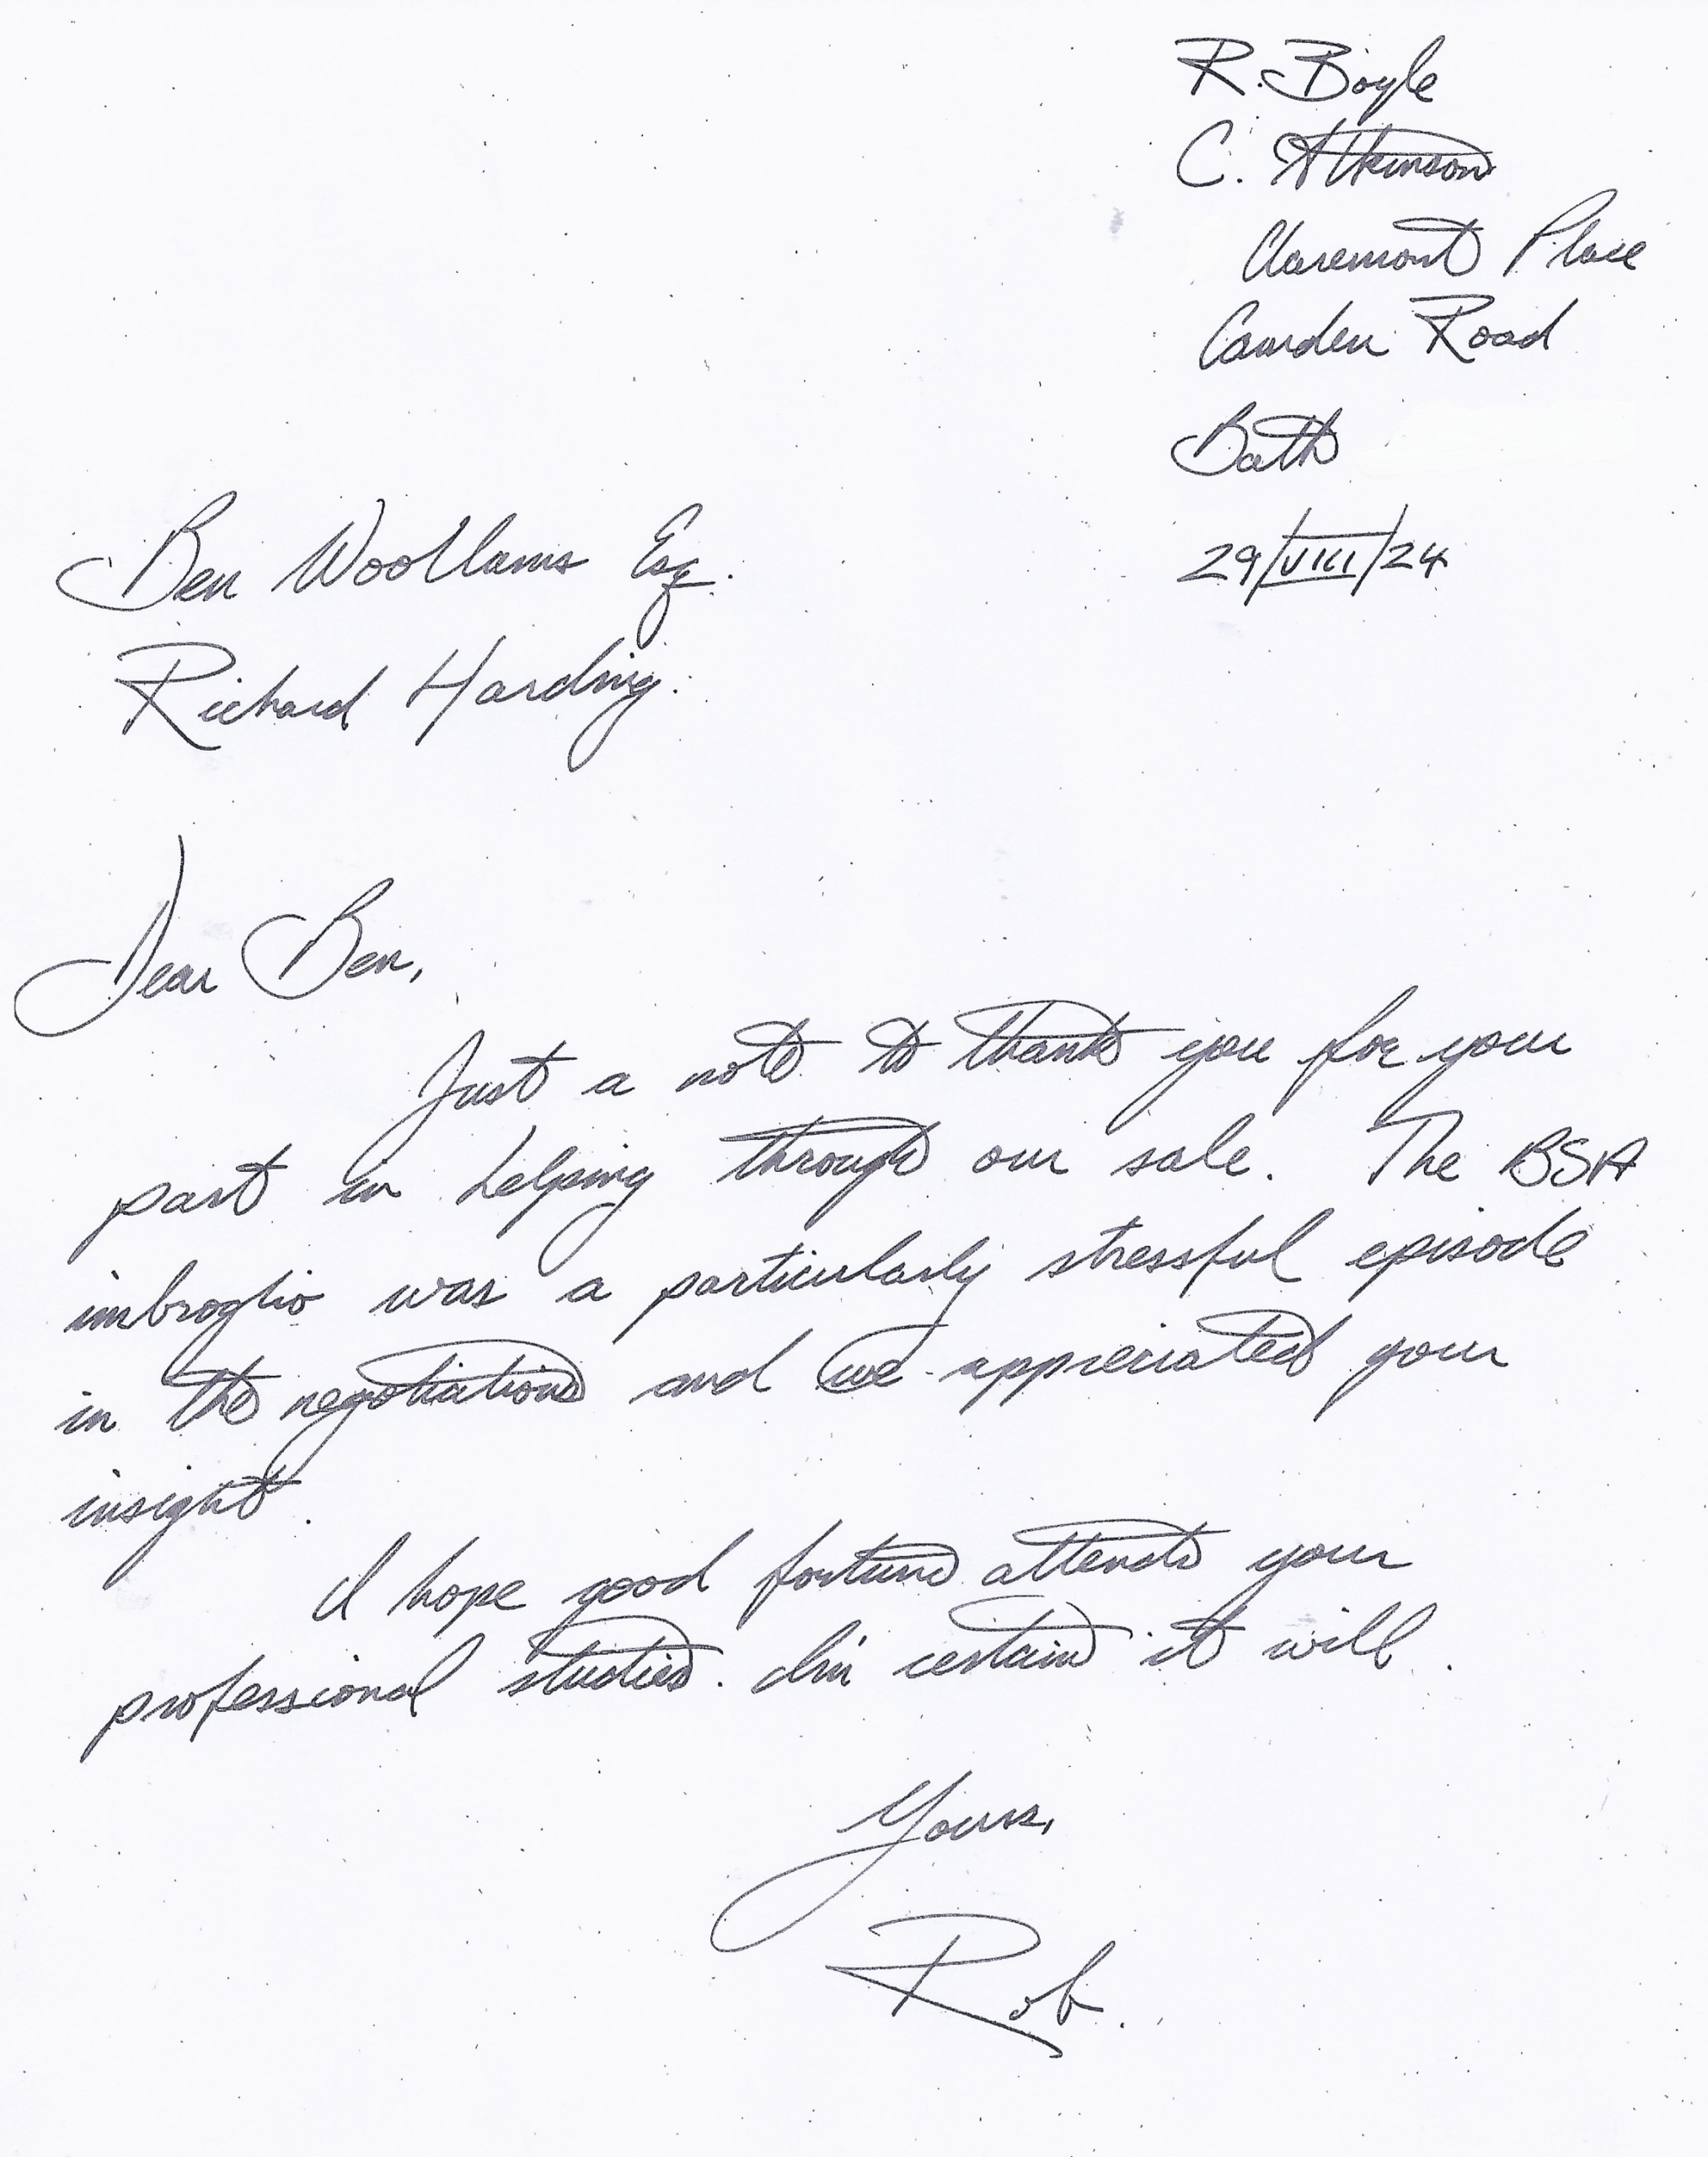 R. Boyle
C. Atkinson
Claremont Place
Camden Road
Bath
29/VIII/24
Ben Woollams Esq.
Richard Harding.
Dear Ben,
Just a note to thank you for your
part in helping through our sale. The BSA
imbroglio was a particularly stressful episode
in the negotiations and we appreciated your
insight.
I hope good fortune attends your
professional studies. I'm certain it will.
Yours,
Rob.